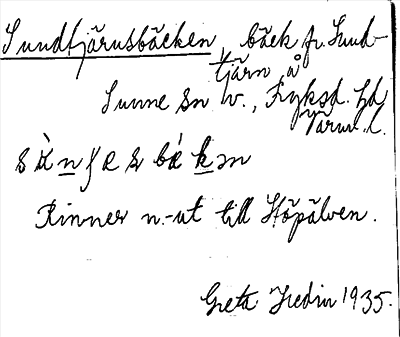 Sundtjärnsbäcken, bäck fr. Sund-
tjärn å
Sunne sn v., Fryksd. hd
Värml. l.
Rinner n.-ut till Höpälven.
Greta Hedin 1935.